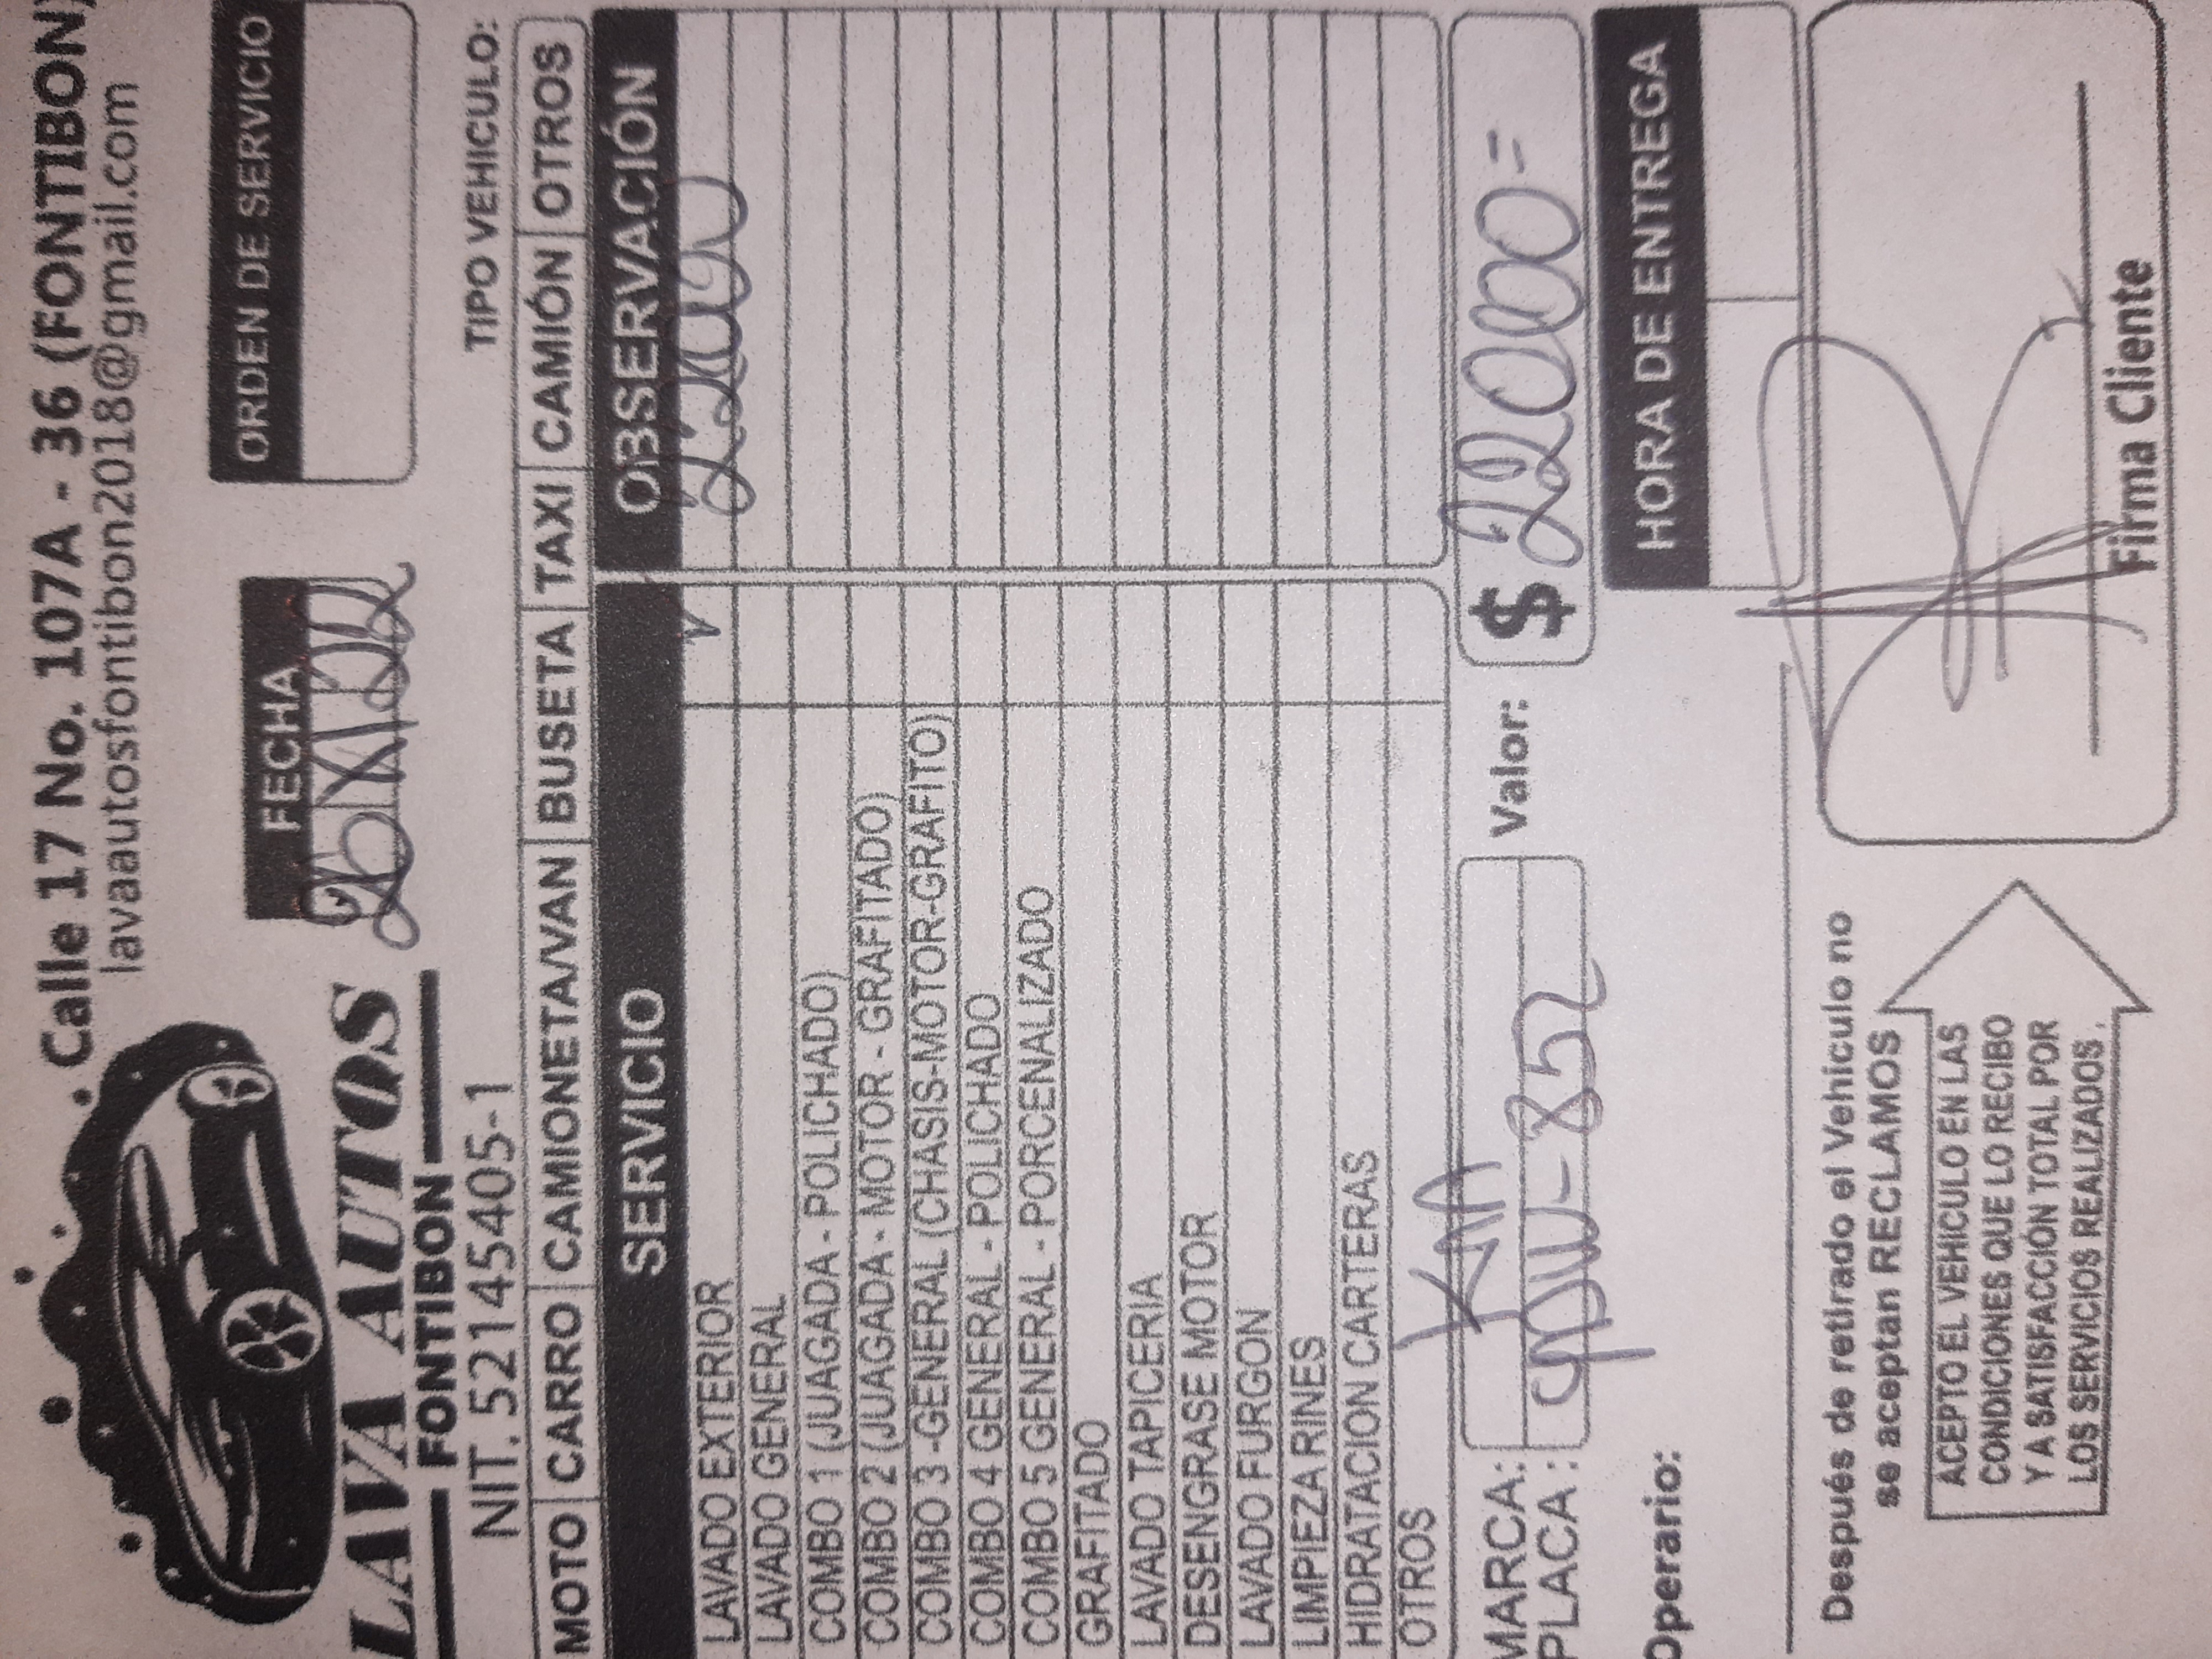 Calle 17 No. 107A - 36 (FONTIBON)
lavaautosfontibon2018@gmail.com
LAVA AUTOS
FONTIBON
NIT. 52145405-1
FECHA
ORDEN DE SERVICIO
TIPO VEHICULO:
MOTO CARRO CAMIONETA/VAN BUSETA TAXI CAMIÓN OTROS
SERVICIO OBSERVACIÓN
LAVADO EXTERIOR 22000
LAVADO GENERAL
COMBO 1 (JUAGADA - POLICHADO)
COMBO 2 (JUAGADA - MOTOR - GRAFITADO)
COMBO 3 -GENERAL (CHASIS-MOTOR-GRAFITO)
COMBO 4 GENERAL - POLICHADO
COMBO 5 GENERAL - PORCENALIZADO
GRAFITADO
LAVADO TAPICERIA
DESENGRASE MOTOR
LAVADO FURGON
LIMPIEZA RINES
HIDRATACION CARTERAS
OTROS
MARCA: KIA
PLACA: -852
Valor: $ 22000=
Operario:
HORA DE ENTREGA
Después de retirado el Vehículo no
se aceptan RECLAMOS
ACEPTO EL VEHICULO EN LAS
CONDICIONES QUE LO RECIBO
Y A SATISFACCIÓN TOTAL POR
LOS SERVICIOS REALIZADOS.
Firma Cliente